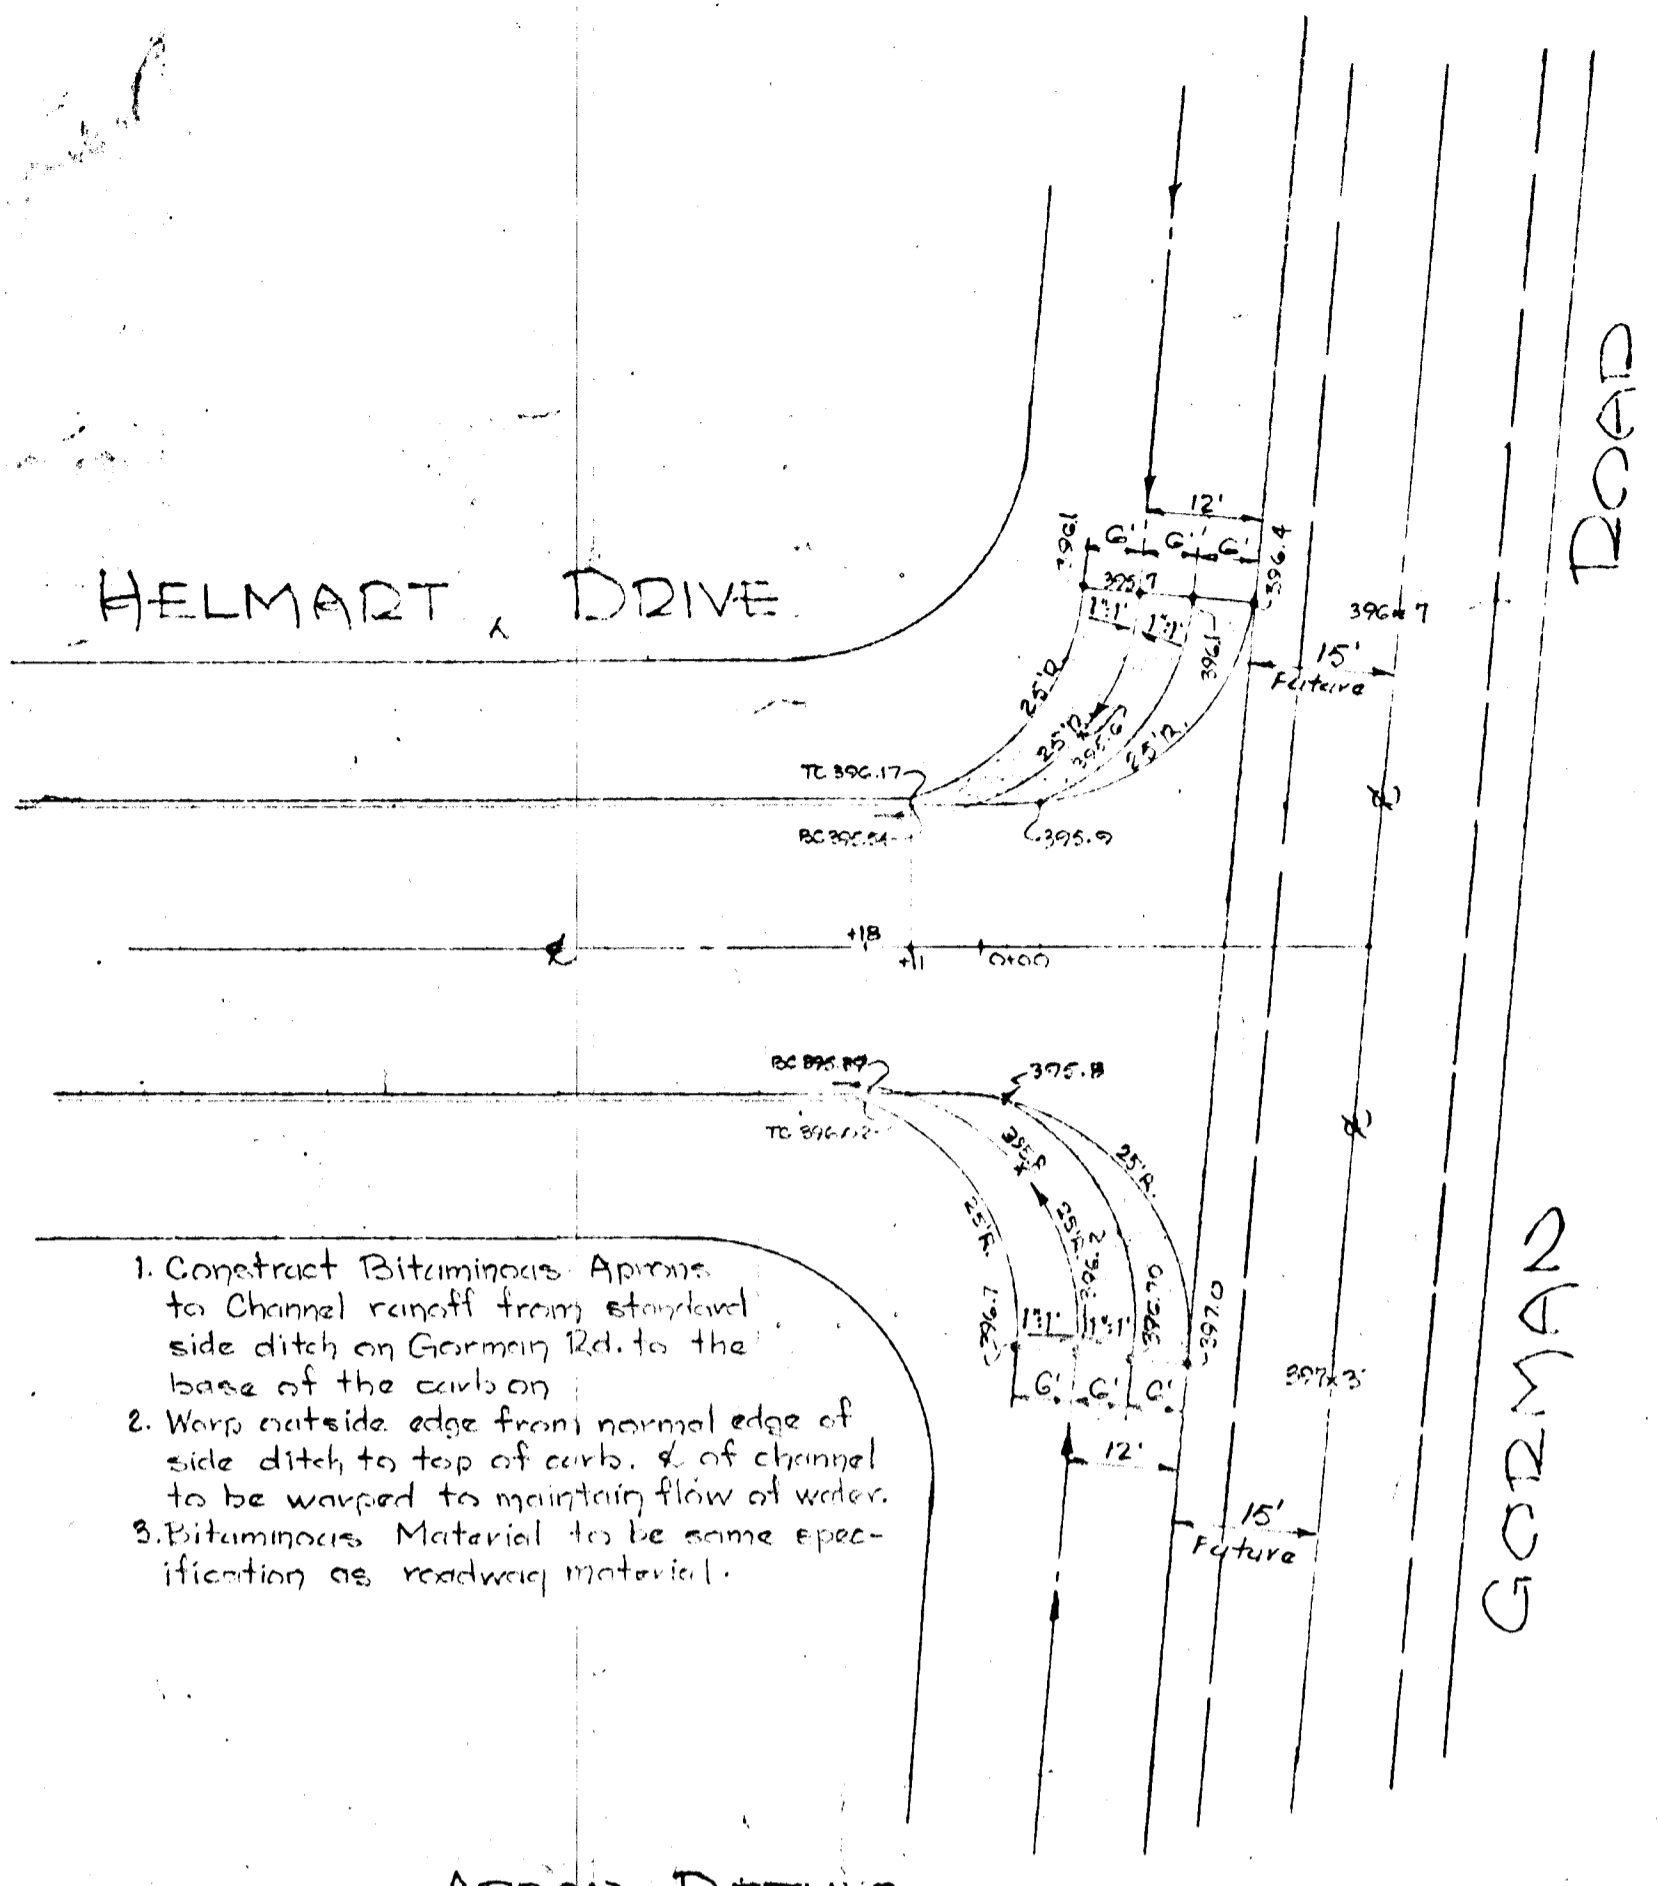 HELMART DRIVE
GORMAN ROAD
12'
6' 6' 6'
396.1
396.4
395.7
1":1' 1":1'
396.1
396.7
15'
Future
25'R.
25'R.
395.6
25'R.
TC 396.17
395.9
℄
℄
+18
+11
0+00
℄
395.8
TC 396.02
25'R.
25'R.
25'R.
396.2
396.7
396.70
397.0
1":1' 1":1'
6' 6' 6'
397.3
12'
15'
Future
1. Construct Bituminous Aprons
to Channel runoff from standard
side ditch on Gorman Rd. to the
base of the curb on
2. Warp outside edge from normal edge of
side ditch to top of curb. ℄ of channel
to be warped to maintain flow of water.
3. Bituminous Material to be same spec-
ification as roadway material.